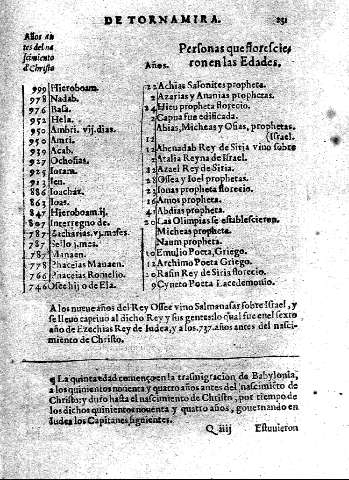 DE TORNAMIRA. 251
Años an
tes del na
scimiento
d'Christo
Personas que florescie
Años. ron en las Edades.
999 Hieroboam.
978 Nadab.
976 Basa.
952 Hela.
950 Ambri. vij. dias.
950 Amri.
939 Acab.
927 Ochosias.
925 Ioram.
913 Ieu.
886 Ioachaz.
863 Ioas.
847 Hieroboam.ij.
807 Interregno de.
787 Zacharias.vj.meses.
787 Sello j.mes.
787 Manaen.
778 Phaceias Manaen.
766 Phaceias Romelio.
746 Osee hijo de Ela.
22 Achias Salonites propheta.
2 Azarias y Ananias prophetas.
24 Hieu propheta florecio.
2 Capua fue edificada.
Abias, Micheas y Osias, prophetas.
12 (Israel.
12 Abenadab Rey de Siria vino sobre
2 Atalia Reyna de Israel.
12 Azael Rey de Siria.
28 Ossea y Ioel prophetas.
23 Ionas propheta florecio.
16 Amos propheta.
41 Abdias propheta.
20 Las Olimpias se establescieron.
Micheas propheta.
Naum propheta.
10 Emulio Poeta, Griego.
11 Archimo Poeta Griego.
20 Rasin Rey de Siria florecio.
9 Cyneto Poeta Lacedemonio.
A los nueue años del Rey Ossee vino Salmanasar sobre Israel, y
se lleuo captiuo al dicho Rey y sus gentes: lo qual fue en el sexto
año de Ezechias Rey de Iudea, y a los. 737. años antes del nasci-
miento de Christo.
¶ La quinta edad començo en la trasmigracion de Babylonia,
a los quinientos nouenta y quatro años antes del nascimiẽto de
Christo: y duro hasta el nascimiento de Christo, por tiempo de
los dichos quinientos nouenta y quatro años, gouernando en
Iudea los Capitanes siguientes.
Q iiij Estuuieron